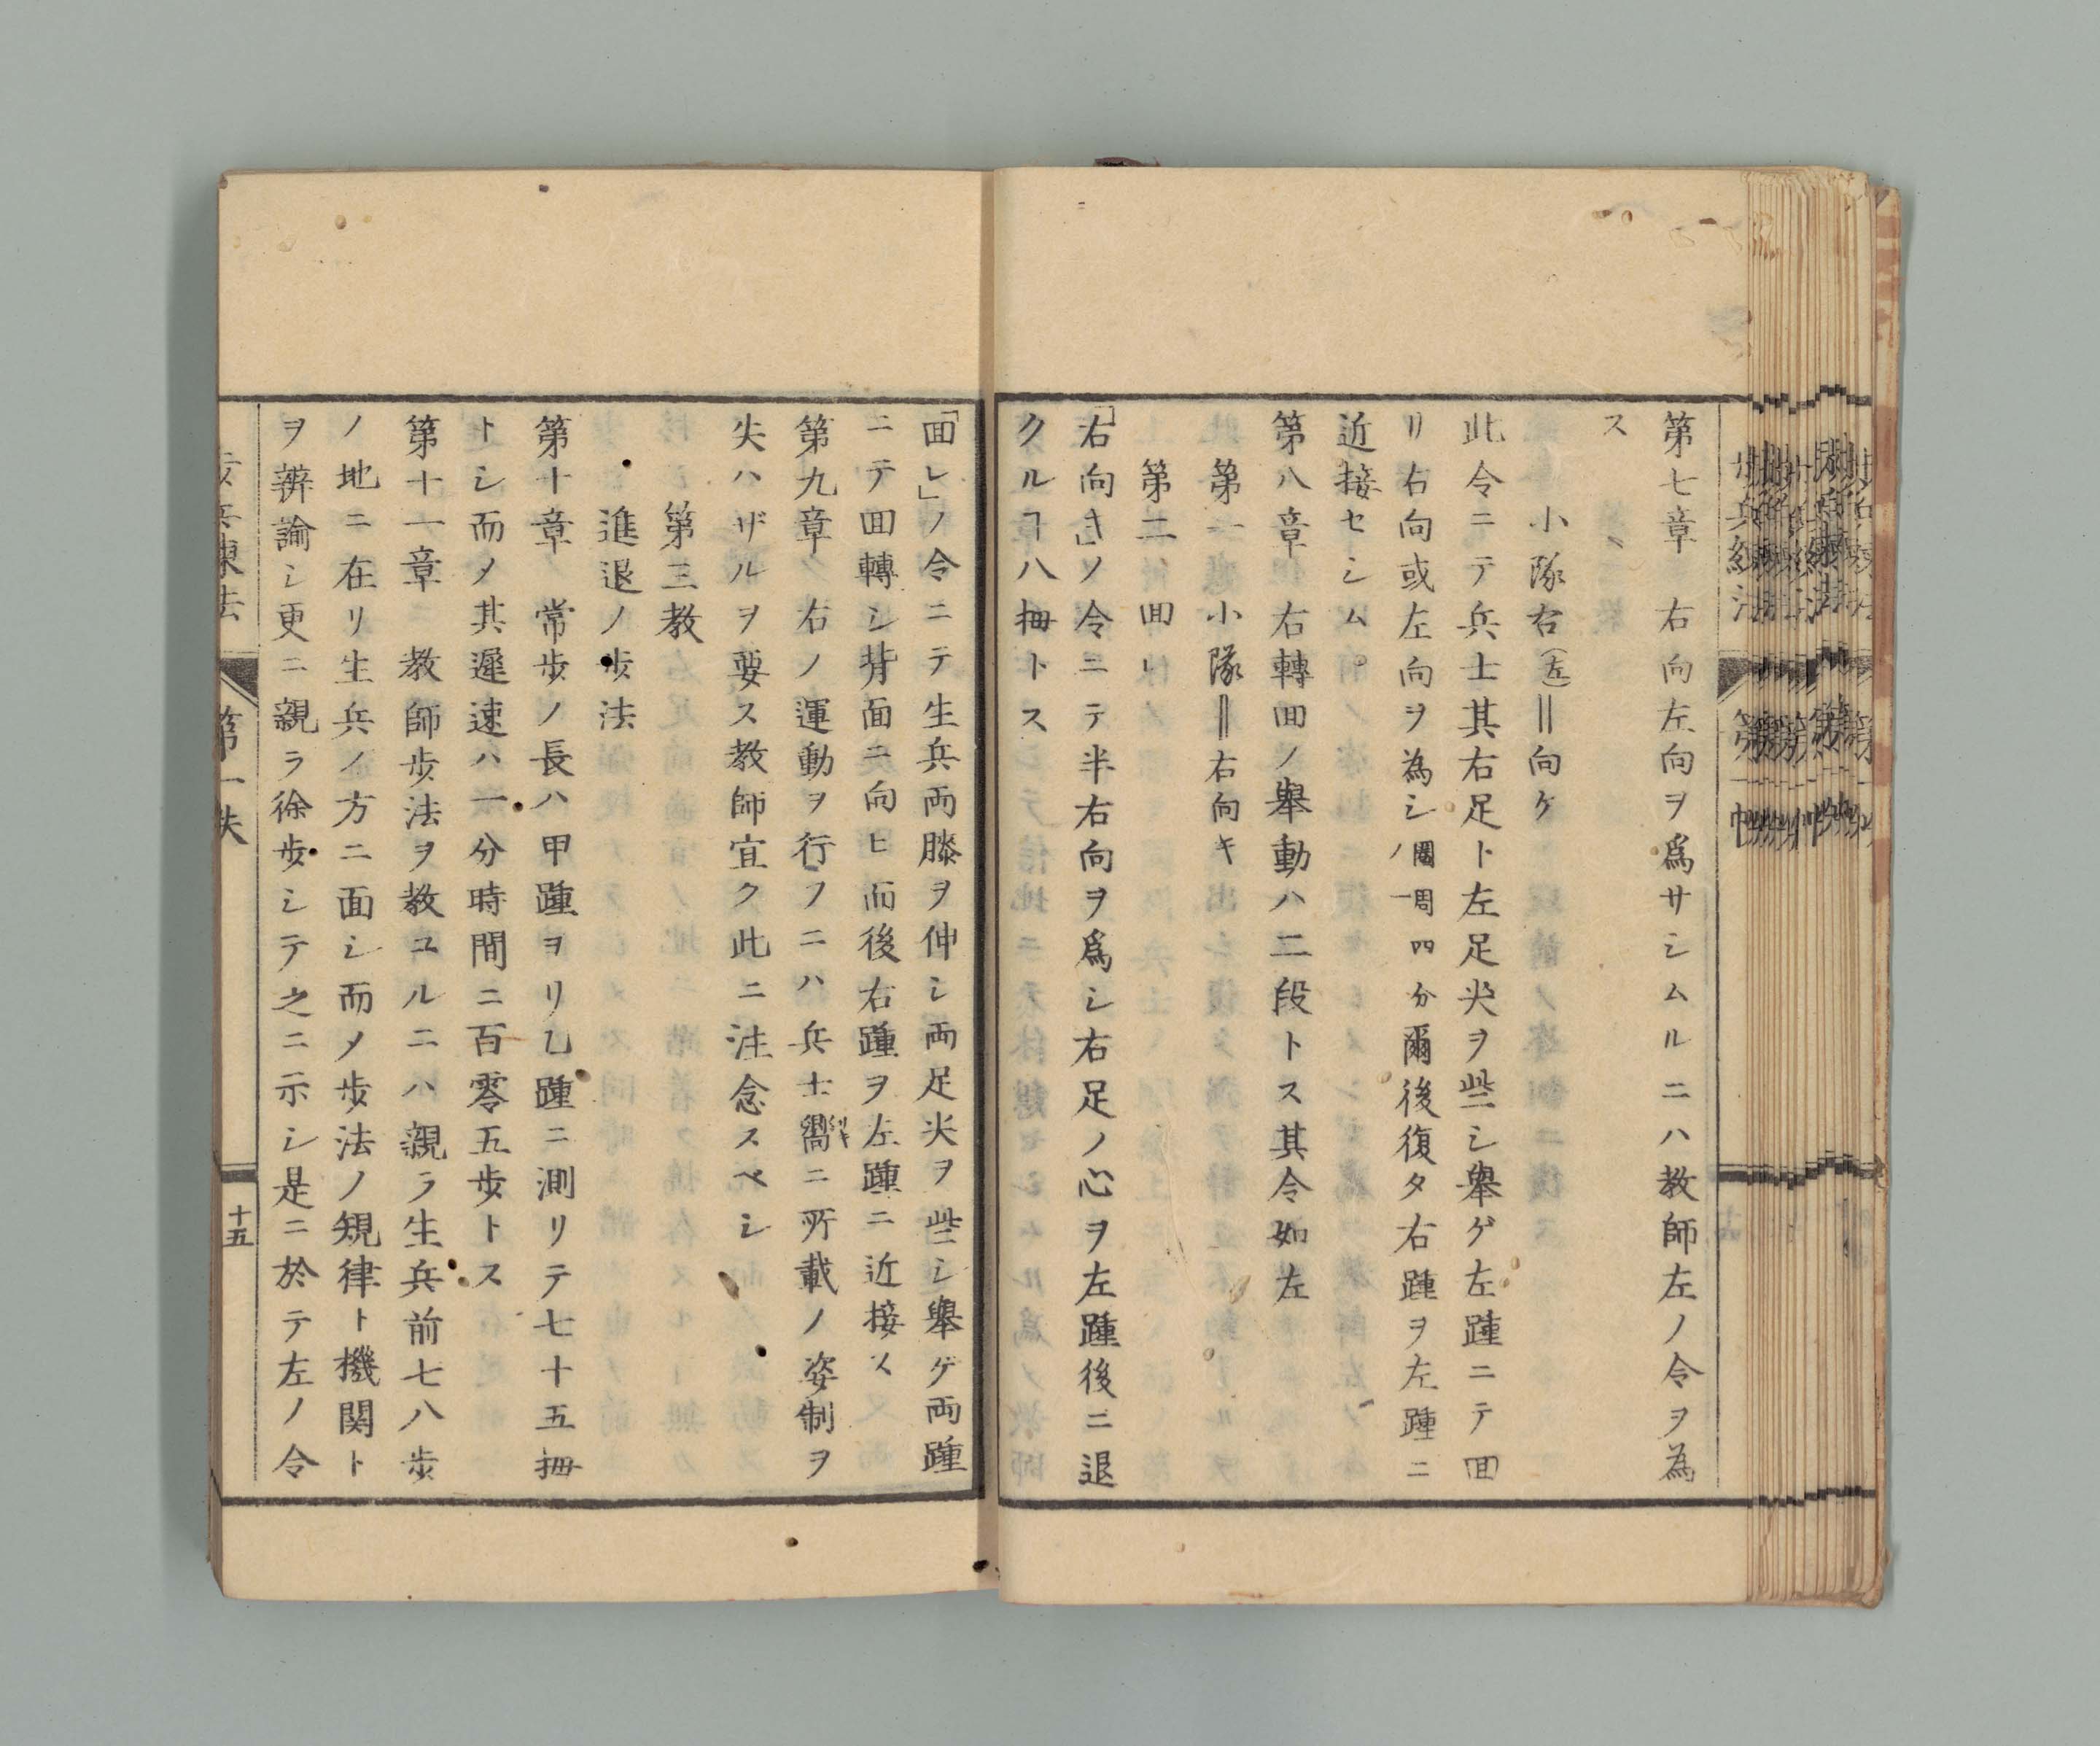 第七章　右向左向ヲ爲サシムルニハ教師左ノ令ヲ為
ス
小隊右（左）‖向ケ
此令ニテ兵士其右足ト左足尖ヲ些シ舉ゲ左踵ニテ囬
リ右向或左向ヲ為シ圈ノ一周四分爾後復タ右踵ヲ左踵ニ
近接セシム
第八章　右轉囬ノ舉動ハ二段トス其令如左
第一　小隊‖右向キ
第二　囬レ
「右向キ」ノ令ニテ半右向ヲ爲シ右足ノ心ヲ左踵後ニ退
クルヿ八拇トス
「囬レ」ノ令ニテ生兵両膝ヲ伸シ両足尖ヲ些シ舉ゲ両踵
ニテ囬轉シ背面ニ向ヒ而後右踵ヲ左踵ニ近接ス
第九章　右ノ運動ヲ行フニハ兵士嚮ニ所載ノ姿制ヲ
失ハザルヲ要ス教師宜ク此ニ注念スベシ
第三教
進退ノ步法
第十章　常步ノ長ハ甲踵ヨリ乙踵ニ測リテ七十五拇
トシ而メ其遲速ハ一分時間ニ百零五步トス
第十一章　教師步法ヲ教ユルニハ親ラ生兵前七八步
ノ地ニ在リ生兵ノ方ニ面シ而メ步法ノ規律ト機関ト
ヲ辨論シ更ニ親ラ徐步シテ之ニ示シ是ニ於テ左ノ令
十五